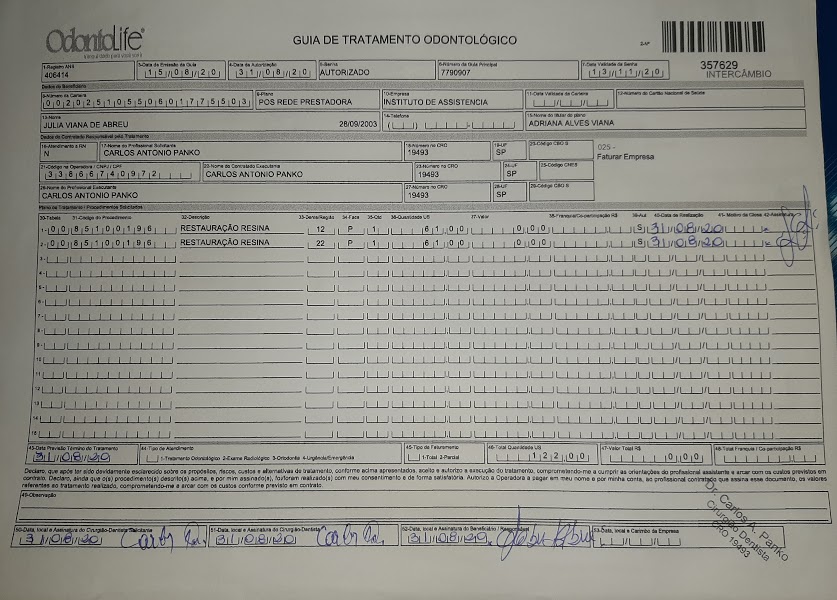 OdontoLife
GUIA DE TRATAMENTO ODONTOLÓGICO
1-Registro ANS
406414
3-Data de Emissão da Guia
15/08/20
4-Data de Autorização
31/08/20
5-Senha
AUTORIZADO
6-Número da Guia Principal
7790907
7-Data Validade da Senha
13/11/20
357629
INTERCÂMBIO
Dados do Beneficiário
8-Número da Carteira
00202510550601775503
9-Plano
POS REDE PRESTADORA
10-Empresa
INSTITUTO DE ASSISTENCIA
11-Data Validade da Carteira
12-Número do Cartão Nacional de Saúde
13-Nome
JULIA VIANA DE ABREU 28/09/2003
14-Telefone
15-Nome do titular do plano
ADRIANA ALVES VIANA
Dados do Contratado Responsável pelo Tratamento
16-Atendimento a RN
N
17-Nome do Profissional Solicitante
CARLOS ANTONIO PANKO
18-Número do CRO
19493
19-UF
SP
20-Código CBO S
025 -
Faturar Empresa
21-Código na Operadora / CNPJ / CPF
33667409 72
22-Nome do Contratado Executante
CARLOS ANTONIO PANKO
23-Número no CRO
19493
24-UF
SP
25-Código CNES
26-Nome do Profissional Executante
CARLOS ANTONIO PANKO
27-Número no CRO
19493
28-UF
SP
29-Código CBO S
Plano de Tratamento / Procedimentos Solicitados
30-Tabela 31-Código do Procedimento 32-Descrição 33-Dente/Região 34-Face 35-Qtd 36-Quantidade US 37-Valor 38-Franquia/Co-participação R$ 39-Aut 40-Data de Realização 41- Motivo da Glosa 42-Assinatura
1- 00 85100196 RESTAURAÇÃO RESINA 12 P 1 61 00 0 00 S 31/08/20
2- 00 85100196 RESTAURAÇÃO RESINA 22 P 1 61 00 0 00 S 31/08/20
3-
4-
5-
6-
7-
8-
9-
10-
11-
12-
13-
14-
15-
43-Data Previsão Término do Tratamento
31/08/20
44-Tipo de Atendimento
1-Tratamento Odontológico 2-Exame Radiológico 3-Ortodontia 4-Urgência/Emergência
45-Tipo de Faturamento
1-Total 2-Parcial
46-Total Quantidade US
122 00
47-Valor Total R$
0 00
48-Total Franquia / Co-participação R$
Declaro, que após ter sido devidamente esclarecido sobre os propósitos, riscos, custos e alternativas de tratamento, conforme acima apresentados, aceito e autorizo a execução do tratamento, comprometendo-me a cumprir as orientações do profissional assistente e arcar com os custos previstos em
contrato. Declaro, ainda que o(s) procedimento(s) descrito(s) acima, e por mim assinado(s), foi/foram realizado(s) com meu consentimento e de forma satisfatória. Autorizo a Operadora a pagar em meu nome e por minha conta, ao profissional contratado que assina esse documento, os valores
referentes ao tratamento realizado, comprometendo-me a arcar com os custos conforme previsto em contrato.
49-Observação
50-Data, local e Assinatura do Cirurgião-Dentista Solicitante
31/08/20
51-Data, local e Assinatura do Cirurgião-Dentista
31/08/20
52-Data, local e Assinatura do Beneficiário / Responsável
31/08/20
53-Data, local e Carimbo da Empresa
Dr. Carlos A. Panko
Cirurgião Dentista
CRO 19493